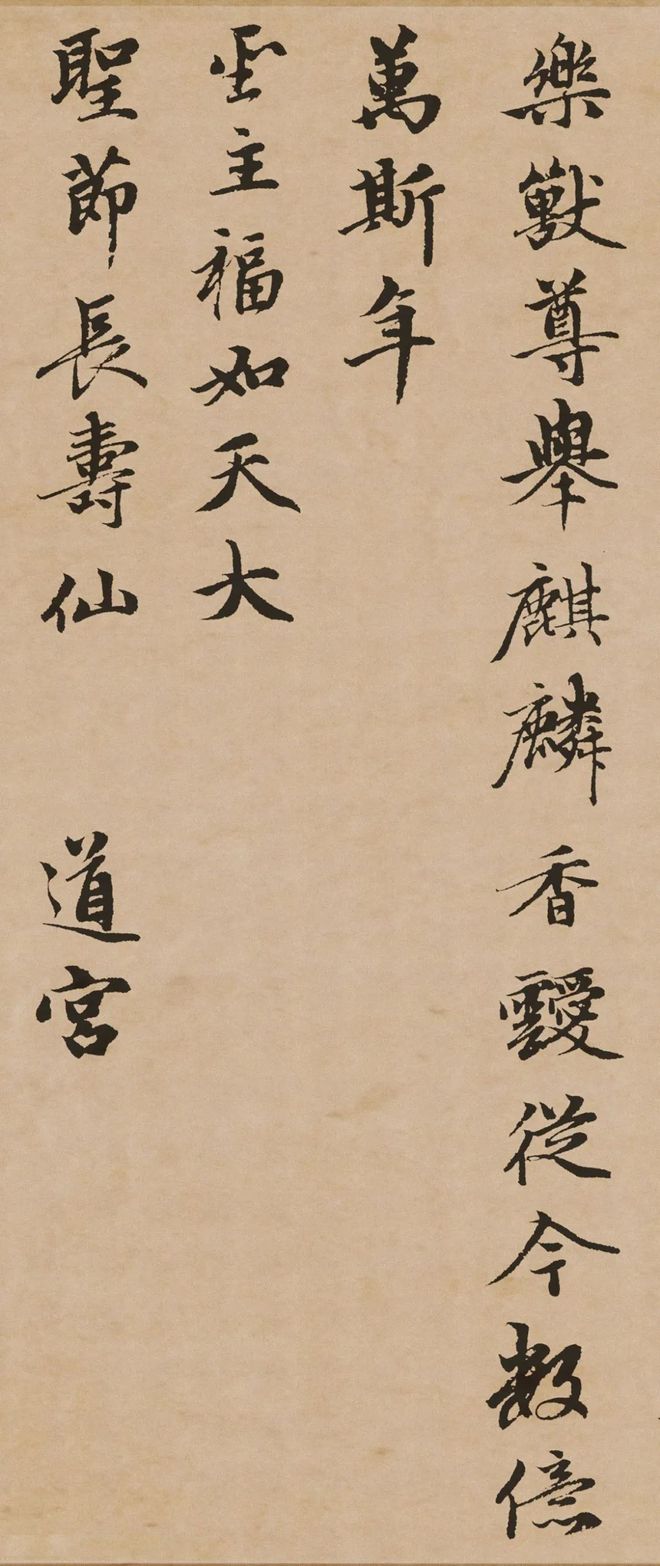 樂獸尊舉麒麟香靉從今數億
萬斯年
聖主福如天大
聖節長壽仙 道宮